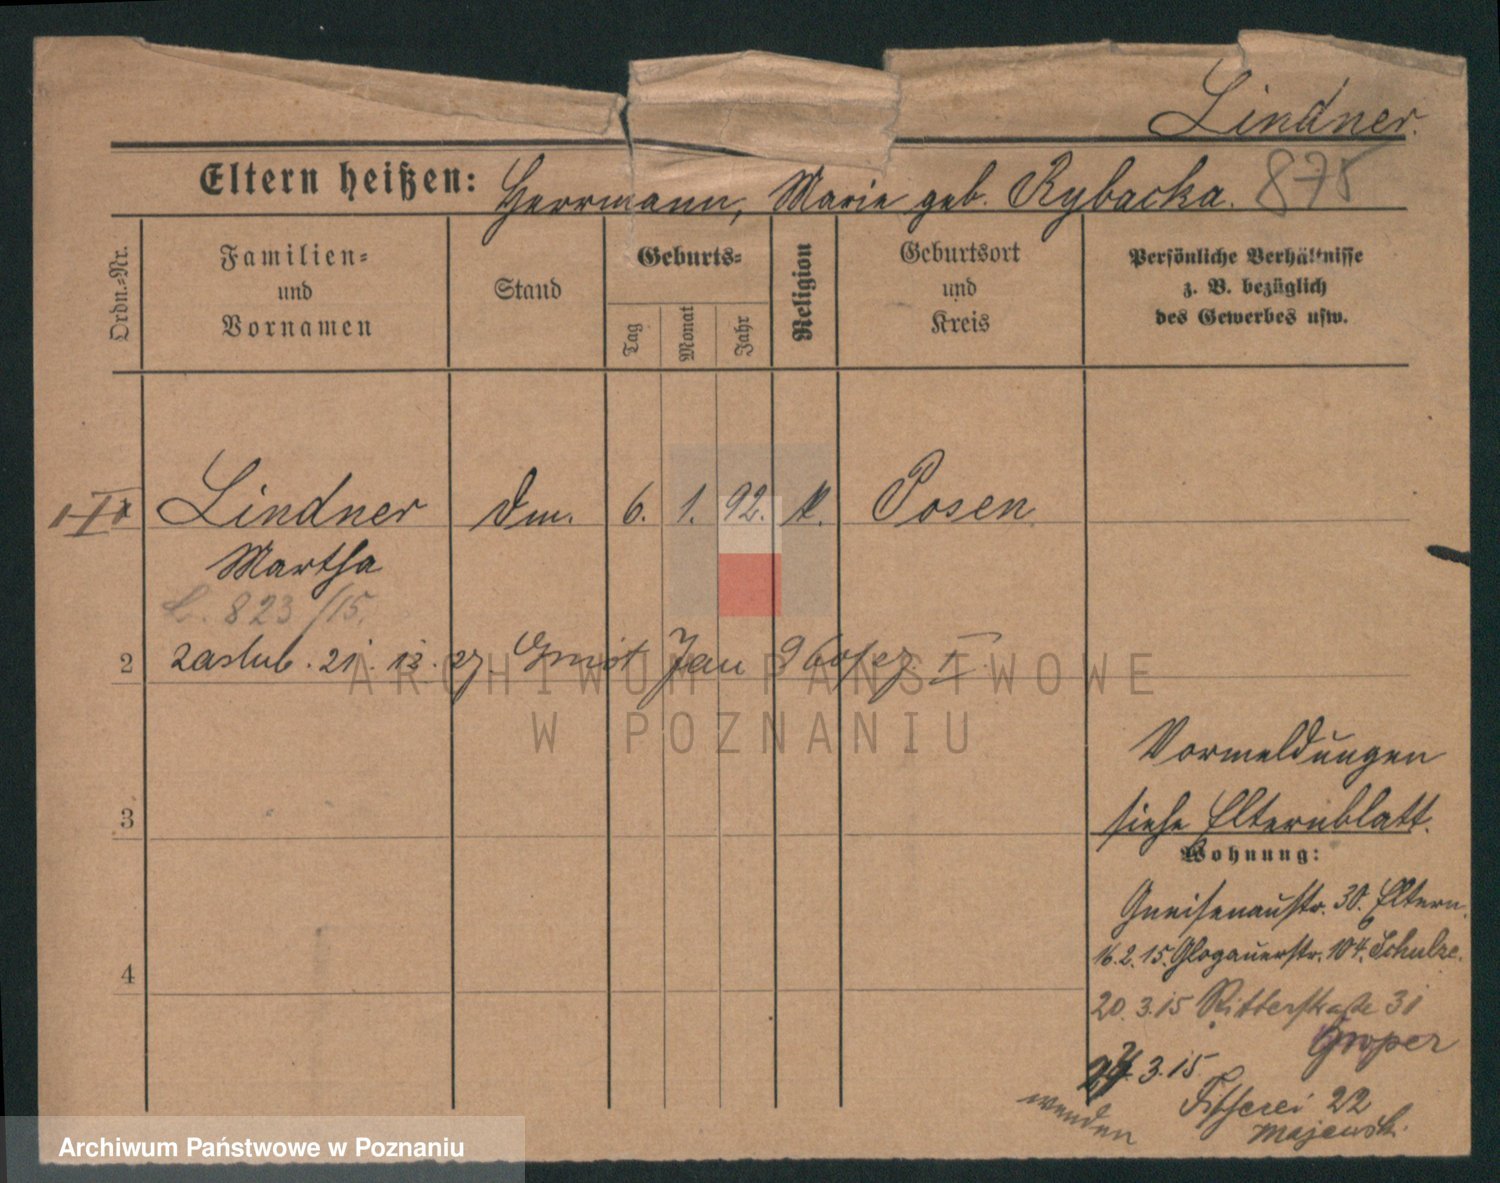 Lindner.
Eltern heißen: Herrmann, Marie geb. Rybacka. 875
Ordn.-Nr.
Familien-
und
Vornamen
Stand
Geburts-
Tag
Monat
Jahr
Religion
Geburtsort
und
Kreis
Persönliche Verhältnisse
z. B. bezüglich
des Gewerbes usw.
Lindner Dm. 6. 1. 92. k. Posen.
Martha
L. 823/15.
2 zaslub. 21. 12. 27. Jan
ARCHIWUM PAŃSTWOWE
W POZNANIU
Vormeldungen
3 siehe Elternblatt.
Wohnung:
Gneisenaustr. 30. Eltern.
16.2.15. Glogauerstr. 104. Schulze.
4
20.3.15 Ritterstraße 31
Groper
27.3.15.
Fischerei 22
Majewski.
wenden
Archiwum Państwowe w Poznaniu